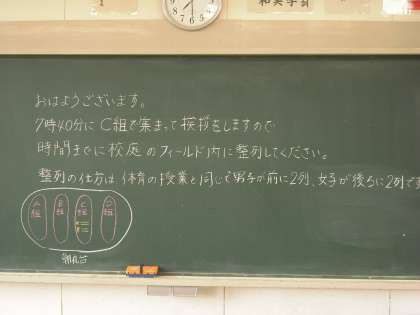 おはようございます。
7時40分に C組で集まって挨拶をしますので
時間までに校庭のフィールド内に整列してください。
整列の仕方は体育の授業と同じで男子が前に2列、女子が後ろに2列です
A組 B組 C組 D組
朝礼台